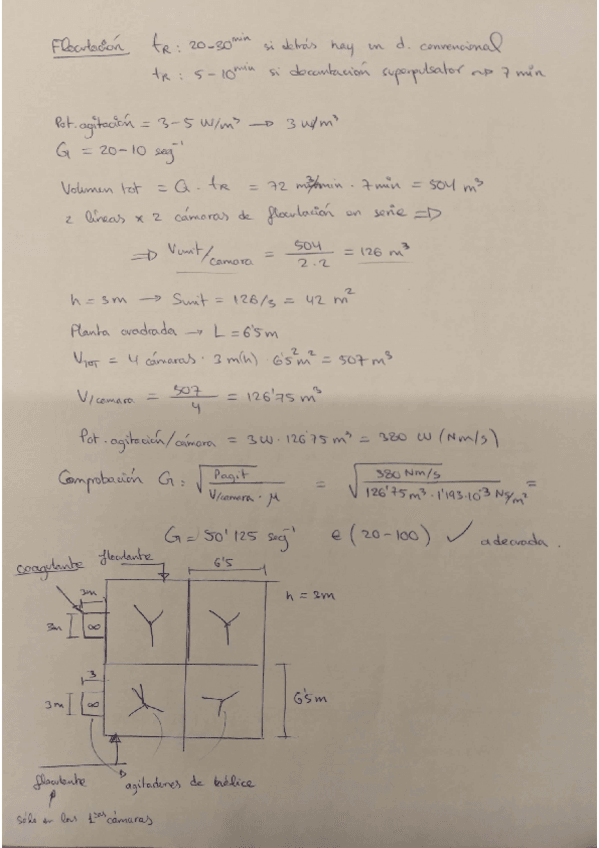 Floculación tR: 20-30 min si detrás hay un d. convencional
tR: 5-10 min si decantación superpulsator ~> 7 min
Pot. agitación = 3-5 W/m³ → 3 W/m³
G = 20-10 seg⁻¹
Volumen tot = Q · tR = 72 m³/min · 7 min = 504 m³
2 líneas x 2 cámaras de floculación en serie ⇒
⇒ Vunit/camara = 504/2·2 = 126 m³
h = 3m → Sunit = 126/3 = 42 m²
Planta cuadrada → L = 6'5 m
VTOT = 4 cámaras · 3 m(h) 6'5² m² = 507 m³
V/camara = 507/4 = 126'75 m³
Pot. agitación/cámara = 3W · 126'75 m³ = 380 W (Nm/s)
Comprobación G: √(Pagit / V/camara · μ) = √(380 Nm/s / 126'75 m³ · 1'193·10⁻³ Ns/m²) =
G = 50'125 seg⁻¹ ∈ (20-100) ✓ adecuada.
coagulante
floculante
6'5
3m
3m
∞
h = 3m
3
3m
∞
6'5m
floculante
agitadores de hélice
sólo en las 1ᵉʳᵃˢ cámaras